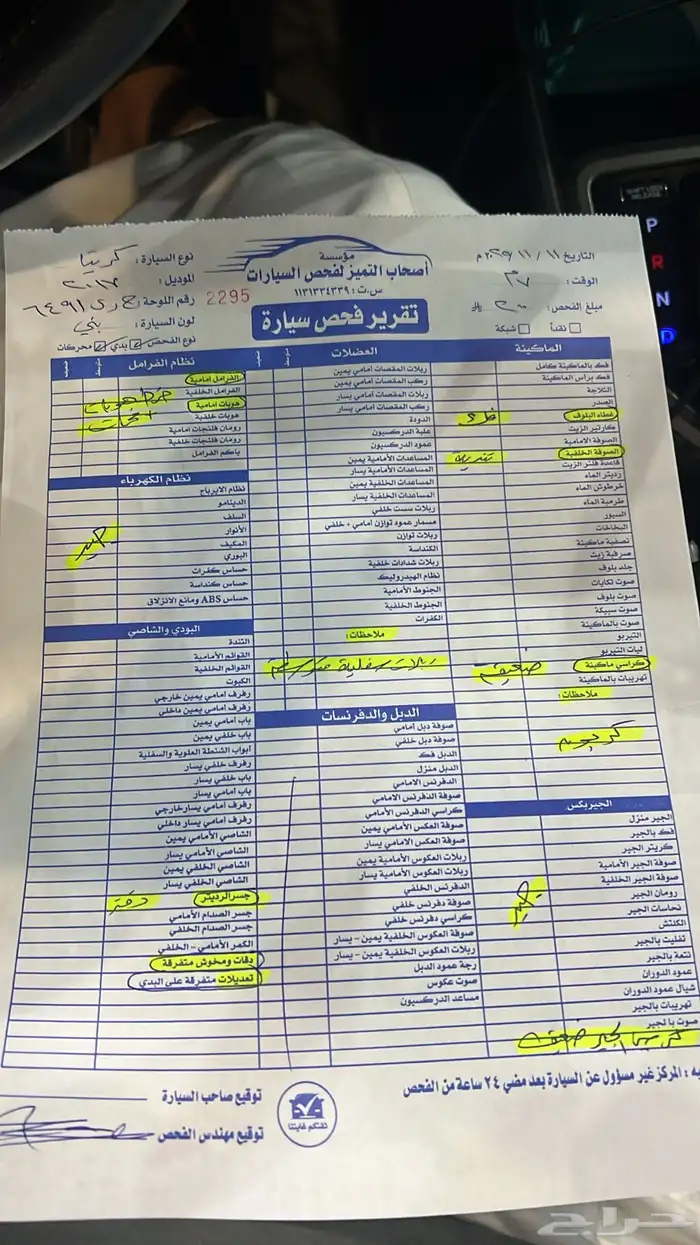 مؤسسة
أصحاب التميز لفحص السيارات
س.ت: ١١٣١٣٣٤٣٣٩
تقرير فحص سيارة
التاريخ ١١ / ١١ /
الوقت:
مبلغ الفحص: ٢٠٠
نقداً
شبكة
نوع السيارة: كريتا
الموديل: ٢٠١٧
رقم اللوحة: ٦٤٩١
2295
لون السيارة: بني
نوع الفحص بدي محركات
الماكينة
فك بالماكينة كامل
فك برأس الماكينة
الثلاجة
الصدر
غطاء البلوف
كارتير الزيت
الصوفة الامامية
الصوفة الخلفية تهريب
قاعدة فلتر الزيت
رديتر الماء
خرطوش الماء
طرمبة الماء
السيور
البخاخات
تصفية ماكينة
صرفية زيت
جلد بلوف
صوت تكايات
صوت بلوف
صوت سبيكة
صوت بالماكينة
التيربو
ليات التيربو
كراسي ماكينة ضعيفه
تهريبات بالماكينة
ملاحظات:
الجيربكس
الجير منزل
فك بالجير
كريتر الجير
صوفة الجير الأمامية
صوفة الجير الخلفية
رومان الجير
نحاسات الجير
جيد
الكلتش
تفليت بالجير
نتعة بالجير
عمود الدوران
شيال عمود الدوران
تهريبات بالجير
صوت بالجير
كرسي الجير ضعيف
العضلات
متوسط
ضعيف
ربلات المقصات امامي يمين
ركب المقصات امامي يمين
ربلات المقصات امامي يسار
ركب المقصات امامي يسار
الدودة
علبة الدركسيون
عمود الدركسيون
المساعدات الأمامية يمين
المساعدات الأمامية يسار
المساعدات الخلفية يمين
المساعدات الخلفية يسار
ربلات سست خلفي
مسمار عمود توازن أمامي + خلفي
ربلات توازن
الكنداسة
ربلات شدادات خلفية
نظام الهيدروليك
الجنوط الأمامية
الجنوط الخلفية
الكفرات
ملاحظات:
ربلات سفلية متوسطه
الدبل والدفرنسات
صوفة دبل أمامي
صوفة دبل خلفي
الدبل فك
الدبل منزل
الدفرنس الامامي
صوفة الدفرنس الامامي
كراسي الدفرنس الأمامي
صوفة العكس الأمامي يمين
صوفة العكس الامامي يسار
ربلات العكوس الأمامية يمين
ربلات العكوس الأمامية يسار
الدفرنس الخلفي
صوفة دفرنس خلفي
كراسي دفرنس خلفي
صوفة العكوس الخلفية يمين - يسار
ربلات العكوس الخلفية يمين - يسار
رجة عمود الدبل
صوت عكوس
مساعد الدركسيون
نظام الفرامل
متوسط
ضعيف
الفرامل امامية
الفرامل الخلفية
هوبات امامية
هوبات خلفية
رومان فلنجات امامية
رومان فلنجات خلفية
باكم الفرامل
نظام الكهرباء
نظام الايرباج
الدينامو
السلف
الأنوار
جيد
المكيف
البوري
حساس كفرات
حساس كنداسة
حساس ABS ومانع الانزلاق
البودي والشاصي
التندة
القوائم الأمامية
القوائم الخلفية
الكبوت
رفرف امامي يمين خارجي
رفرف امامي يمين داخلي
باب امامي يمين
باب خلفي يمين
ابواب الشنطة العلوية والسفلية
رفرف خلفي يسار
باب خلفي يسار
باب أمامي يسار
رفرف امامي يسار خارجي
رفرف امامي يسار داخلي
الشاصي الأمامي يمين
الشاصي الأمامي يسار
الشاصي الخلفي يمين
الشاصي الخلفي يسار
جسر الرديتر دقة
جسر الصدام الأمامي
جسر الصدام الخلفي
الكمر الأمامي - الخلفي
دقات ومخوش متفرقة
تعديلات متفرقة على البدي
به: المركز غير مسؤول عن السيارة بعد مضي ٢٤ ساعة من الفحص
توقيع صاحب السيارة
توقيع مهندس الفحص
ثقتكم غايتنا
P
R
N
D
حراج